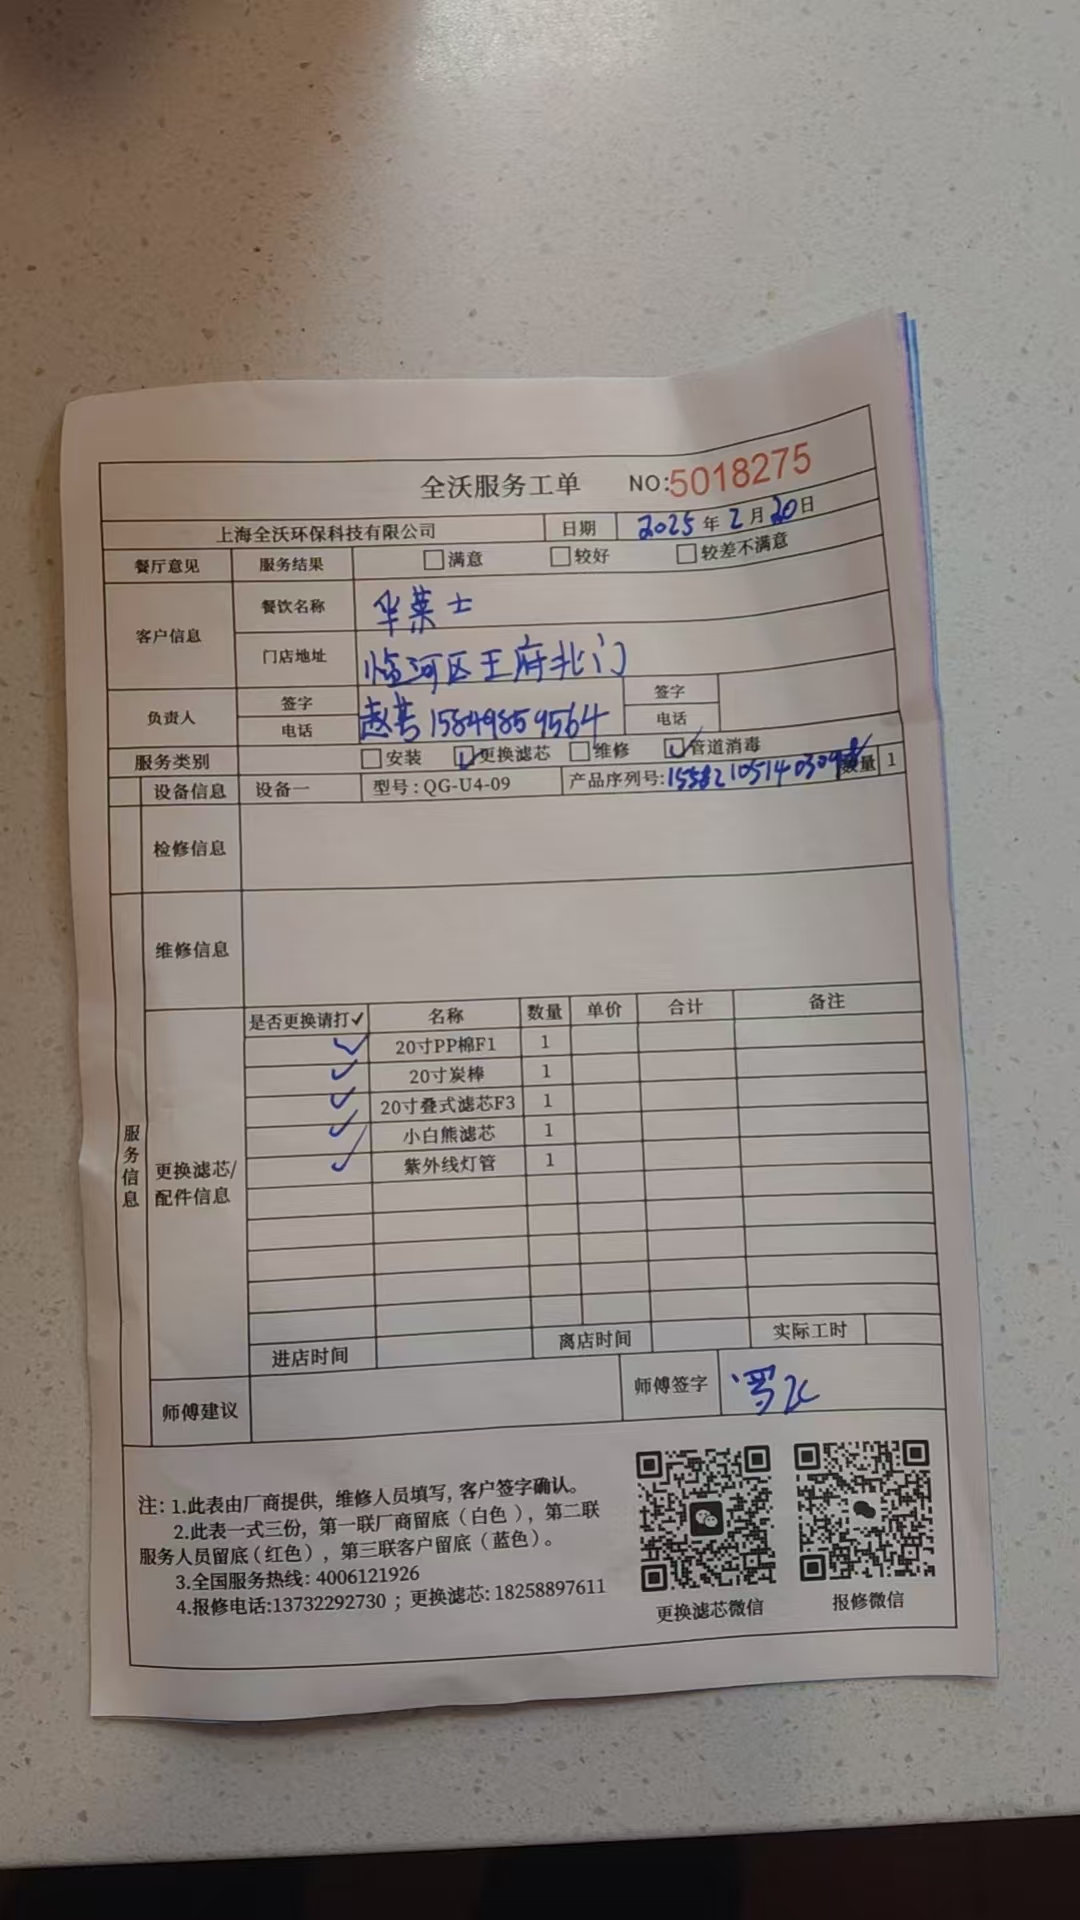 全沃服务工单 NO:5018275
上海全沃环保科技有限公司 日期 2025年2月20日
餐厅意见 服务结果 □满意 □较好 □较差不满意
客户信息 餐饮名称 华莱士
门店地址 临河区王府北门
负责人 签字 签字
电话 15849859564 电话
服务类别 □安装 ☑更换滤芯 □维修 ☑管道消毒
设备信息 设备一 型号:QG-U4-09 产品序列号: 数量 1
检修信息
维修信息
服务信息
更换滤芯/配件信息
是否更换请打✓ 名称 数量 单价 合计 备注
✓ 20寸PP棉F1 1
✓ 20寸炭棒 1
✓ 20寸叠式滤芯F3 1
✓ 小白熊滤芯 1
✓ 紫外线灯管 1
进店时间 离店时间 实际工时
师傅建议 师傅签字
注: 1.此表由厂商提供，维修人员填写, 客户签字确认。
2.此表一式三份，第一联厂商留底（白色），第二联
服务人员留底(红色)，第三联客户留底（蓝色）。
3.全国服务热线: 4006121926
4.报修电话:13732292730 ; 更换滤芯: 18258897611
更换滤芯微信 报修微信